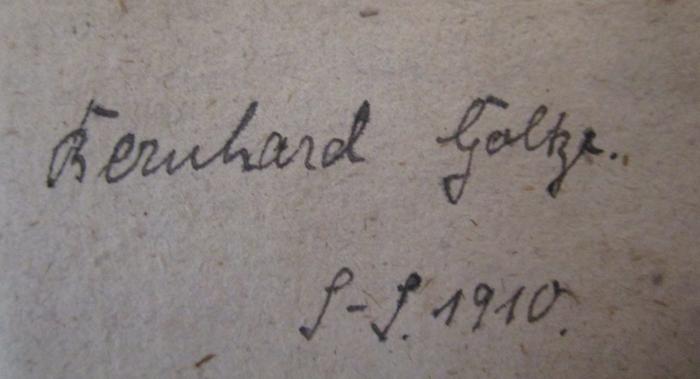 Bernhard Goltze.
S-S. 1910.